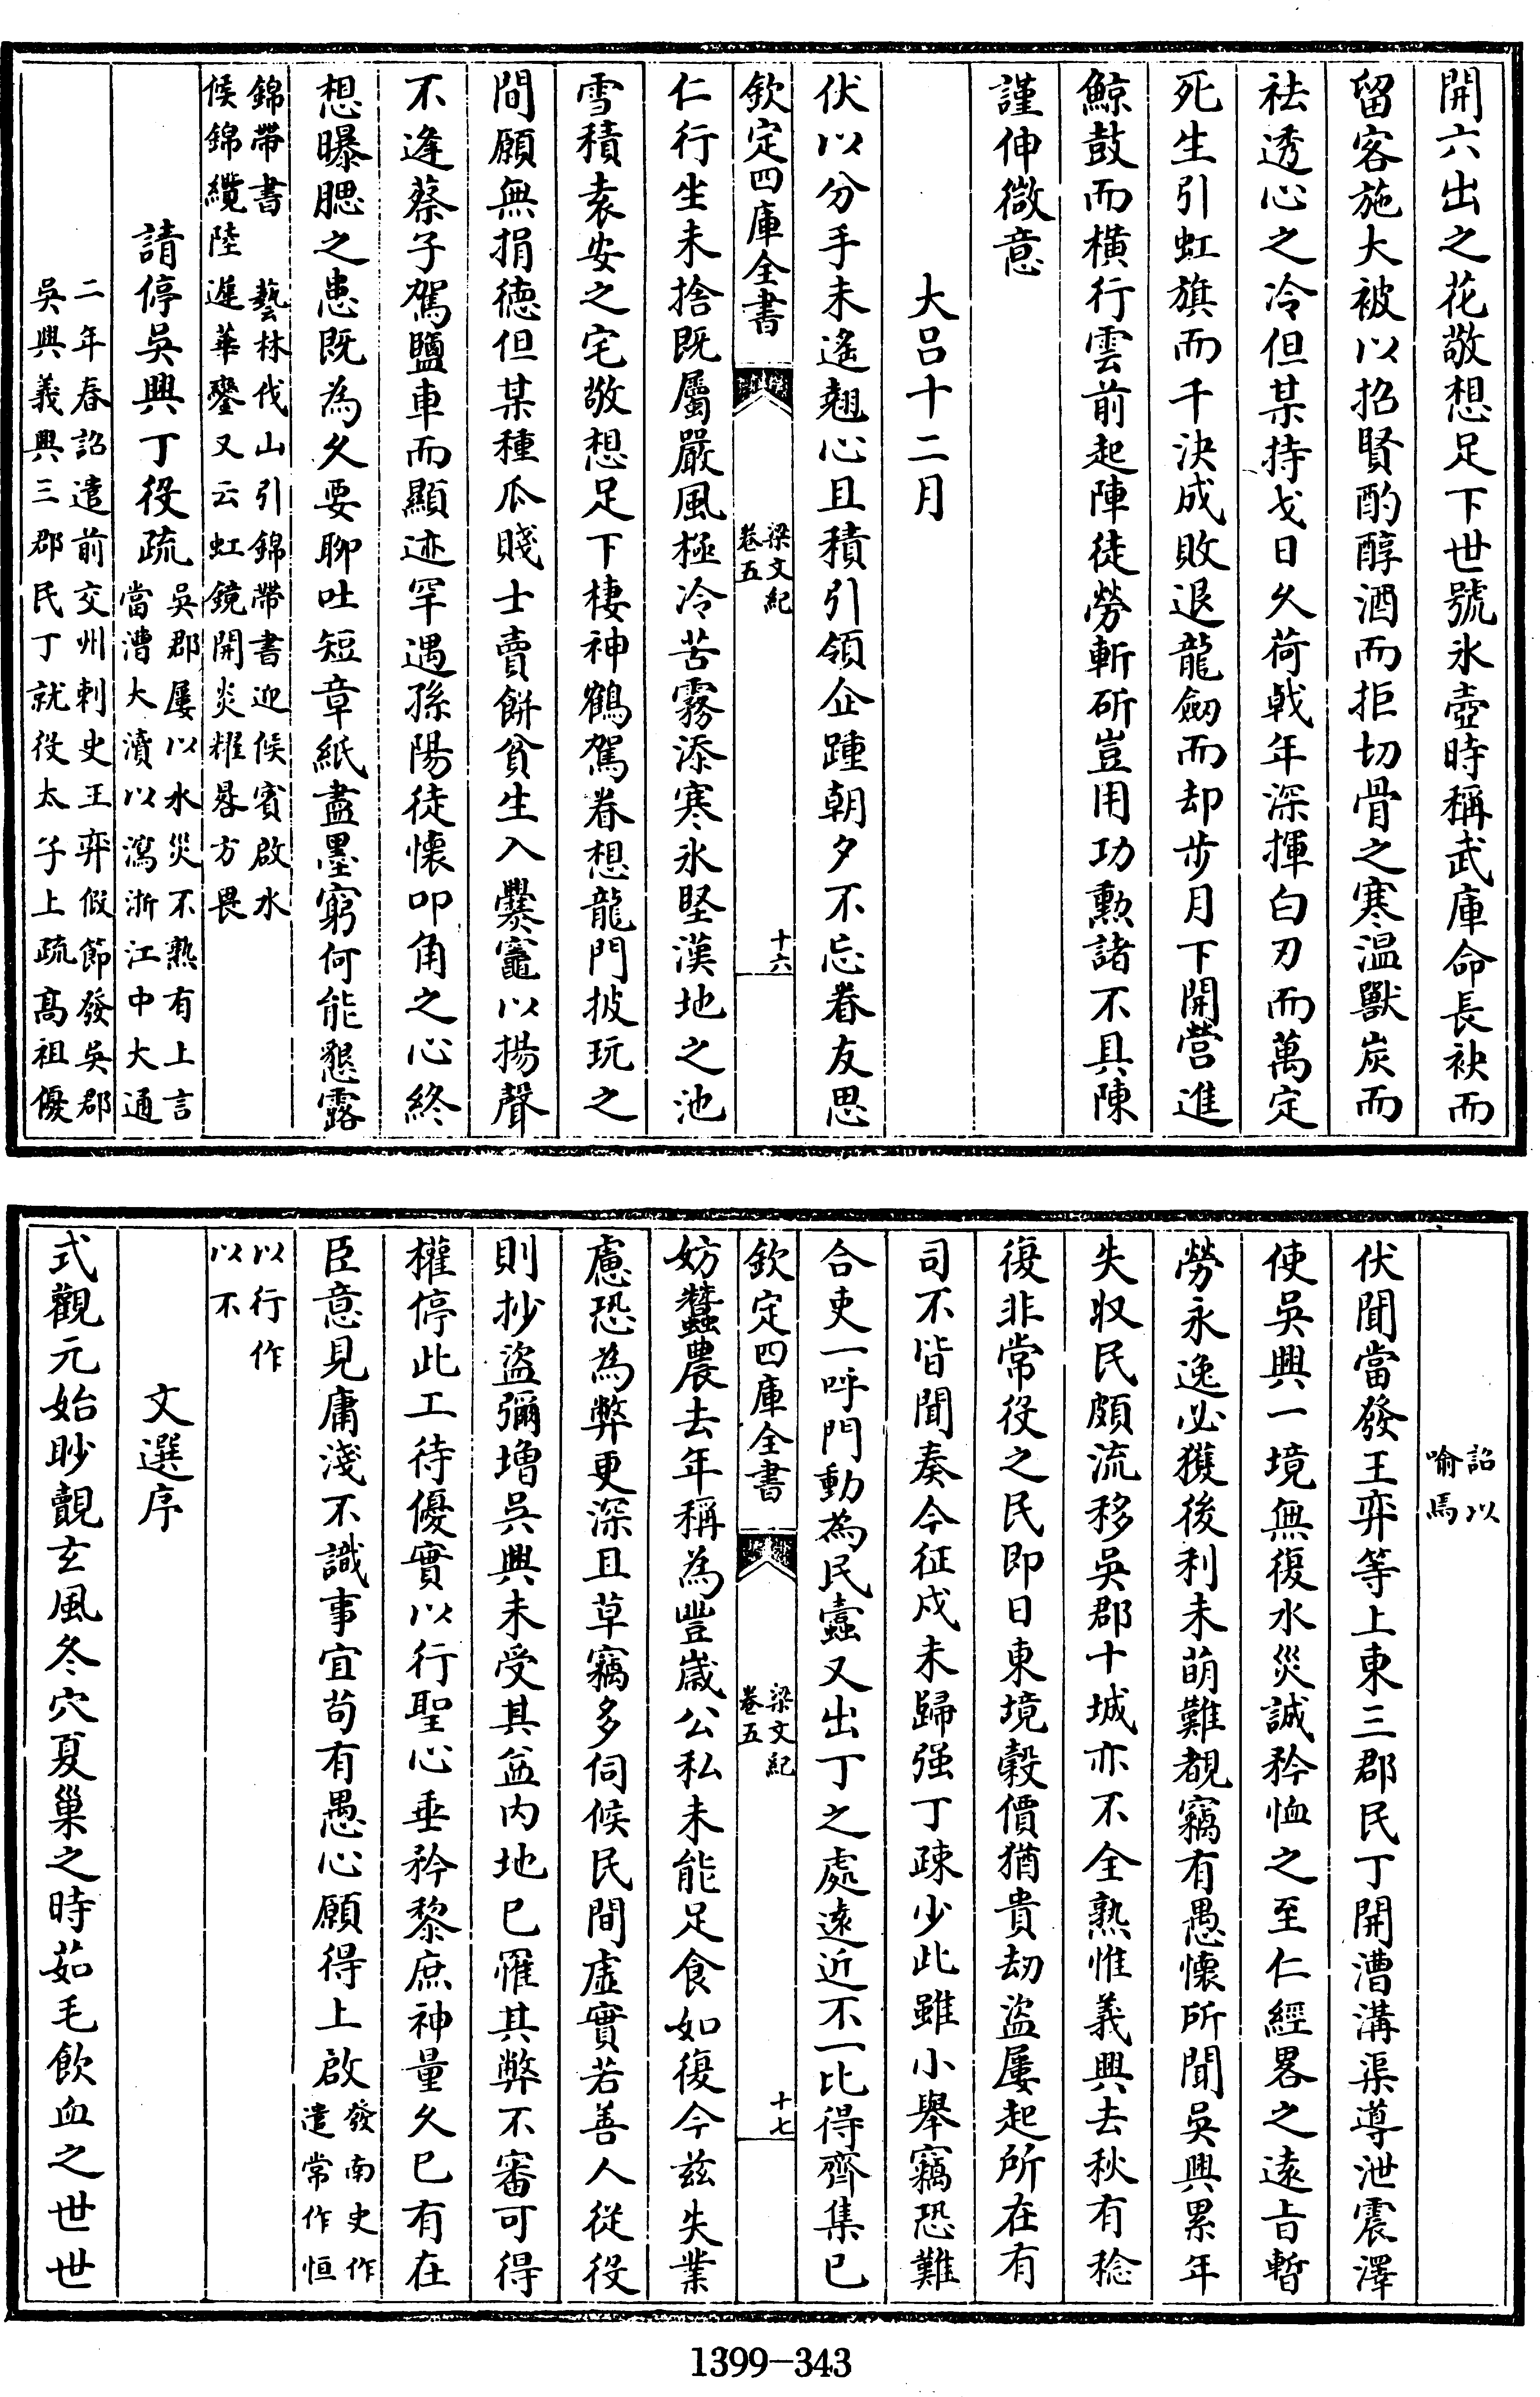 開六出之花敬想足下世號氷壺時稱武庫命長袂而
留客施大被以招賢酌醇酒而拒切骨之寒温獸炭而
袪透心之冷但某持戈日久荷戟年深揮白刃而萬定
死生引虹旗而千決成敗退龍劔而却步月下開營進
鯨鼓而橫行雲前起陣徒勞斬斫豈用功勲諸不具陳
謹伸微意
大吕十二月
伏以分手未遙翹心且積引領企踵朝夕不忘眷友思
欽定四庫全書
梁文紀
卷五
十六
仁行生未捨既屬嚴風極冷苦霧添寒氷堅漢地之池
雪積袁安之宅敬想足下棲神鶴駕眷想龍門披玩之
間願無捐徳但某種瓜賤士賣餅貧生入爨竈以揚聲
不逢蔡子駕鹽車而顯迹罕遇孫陽徒懷叩角之心終
想曝腮之患既為久要聊吐短章紙盡墨窮何能懇露
錦帶書　藝林伐山引錦帶書迎候賓啟水
候錦纜陸遲華鐢又云虹鏡開炎糚晷方畏
請停吳興丁役疏
吳郡屢以水災不熟有上言
當漕大瀆以瀉浙江中大通
二年春詔遣前交州刺史王弈假節發吳郡
吳興義興三郡民丁就役太子上疏髙祖優
詔以
喻焉
伏聞當發王弈等上東三郡民丁開漕溝渠導泄震澤
使吳興一境無復水災誠矜恤之至仁經畧之遠旨暫
勞永逸必獲後利未萌難覩竊有愚懷所聞吳興累年
失収民頗流移吳郡十城亦不全熟惟義興去秋有稔
復非常役之民即日東境糓價猶貴刼盜屢起所在有
司不皆聞奏今征戍未歸强丁疎少此雖小舉竊恐難
合吏一呼門動為民蠧又出丁之處遠近不一比得齊集已
欽定四庫全書
梁文紀
卷五
十七
妨蠶農去年稱為豐嵗公私未能足食如復今兹失業
慮恐為弊更深且草竊多伺候民間虛實若善人從役
則抄盜彌増吳興未受其益内地已罹其弊不審可得
權停此工待優實以行聖心垂矜黎庶神量久已有在
臣意見庸淺不識事宜苟有愚心願得上啟
發南史作
遣常作恒
以行作
以不
文選序
式觀元始眇覿玄風冬穴夏巢之時茹毛飲血之世世
1399-343